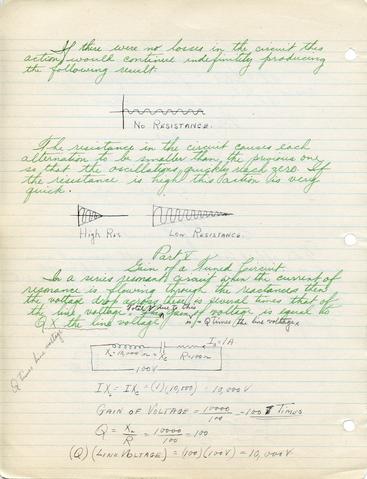 If there were no losses in the circuit this
action would continue indefinitly producing
the following result.
No Resistance.
The resistance in the circuit causes each
alternation to be smaller than the previous one
so that the oscillations quickly reach zero. If
the resistance is high this action is very
quick.
High Res. Low Resistance.
Part V
Gain of a Tuned Circuit.
In a series resonant circuit when the current of
resonance is flowing through the reactances then
the voltage drop across them is several times that of
the line voltage. Total V due to this
gain of voltage is equal to
Q X the line voltage = Q times the line voltage
Q times line voltage
X = 10,000 Ω = Xc R = 100 Ω I = 1A
100V
IX = IXc = (1)(10,000) = 10,000V
Gain of Voltage = 10000/100 = 100 Times
Q = XL/R = 10000/100 = 100
(Q)(Line Voltage) = (100)(100V) = 10,000V